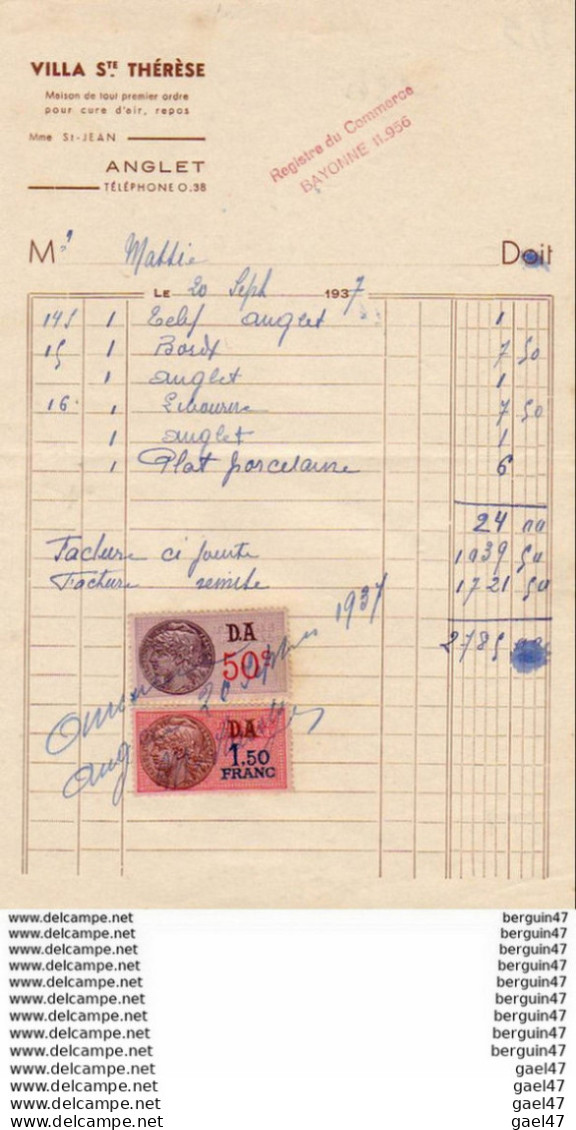 VILLA STE THÉRÈSE
Maison de tout premier ordre
pour cure d'air, repos
Mme St-JEAN
ANGLET
TÉLÉPHONE 0.38
Registre du Commerce
BAYONNE 11.956
M Mattie Doit
LE 20 Sept 1937
1 anglet 1
15 1 Bordx 7 50
1 anglet 1
16 1 Libourne 7 50
1 anglet 1
1 Plat porcelaine 6
24 00
Facture ci jointe 1039 50
Facture remise 1721 50
2785
D.A
50c
20 Septembre 1937
D.A
1,50
FRANC
www.delcampe.net berguin47
www.delcampe.net berguin47
www.delcampe.net berguin47
www.delcampe.net berguin47
www.delcampe.net berguin47
www.delcampe.net berguin47
www.delcampe.net berguin47
www.delcampe.net berguin47
www.delcampe.net berguin47
www.delcampe.net gael47
www.delcampe.net gael47
www.delcampe.net gael47
www.delcampe.net gael47